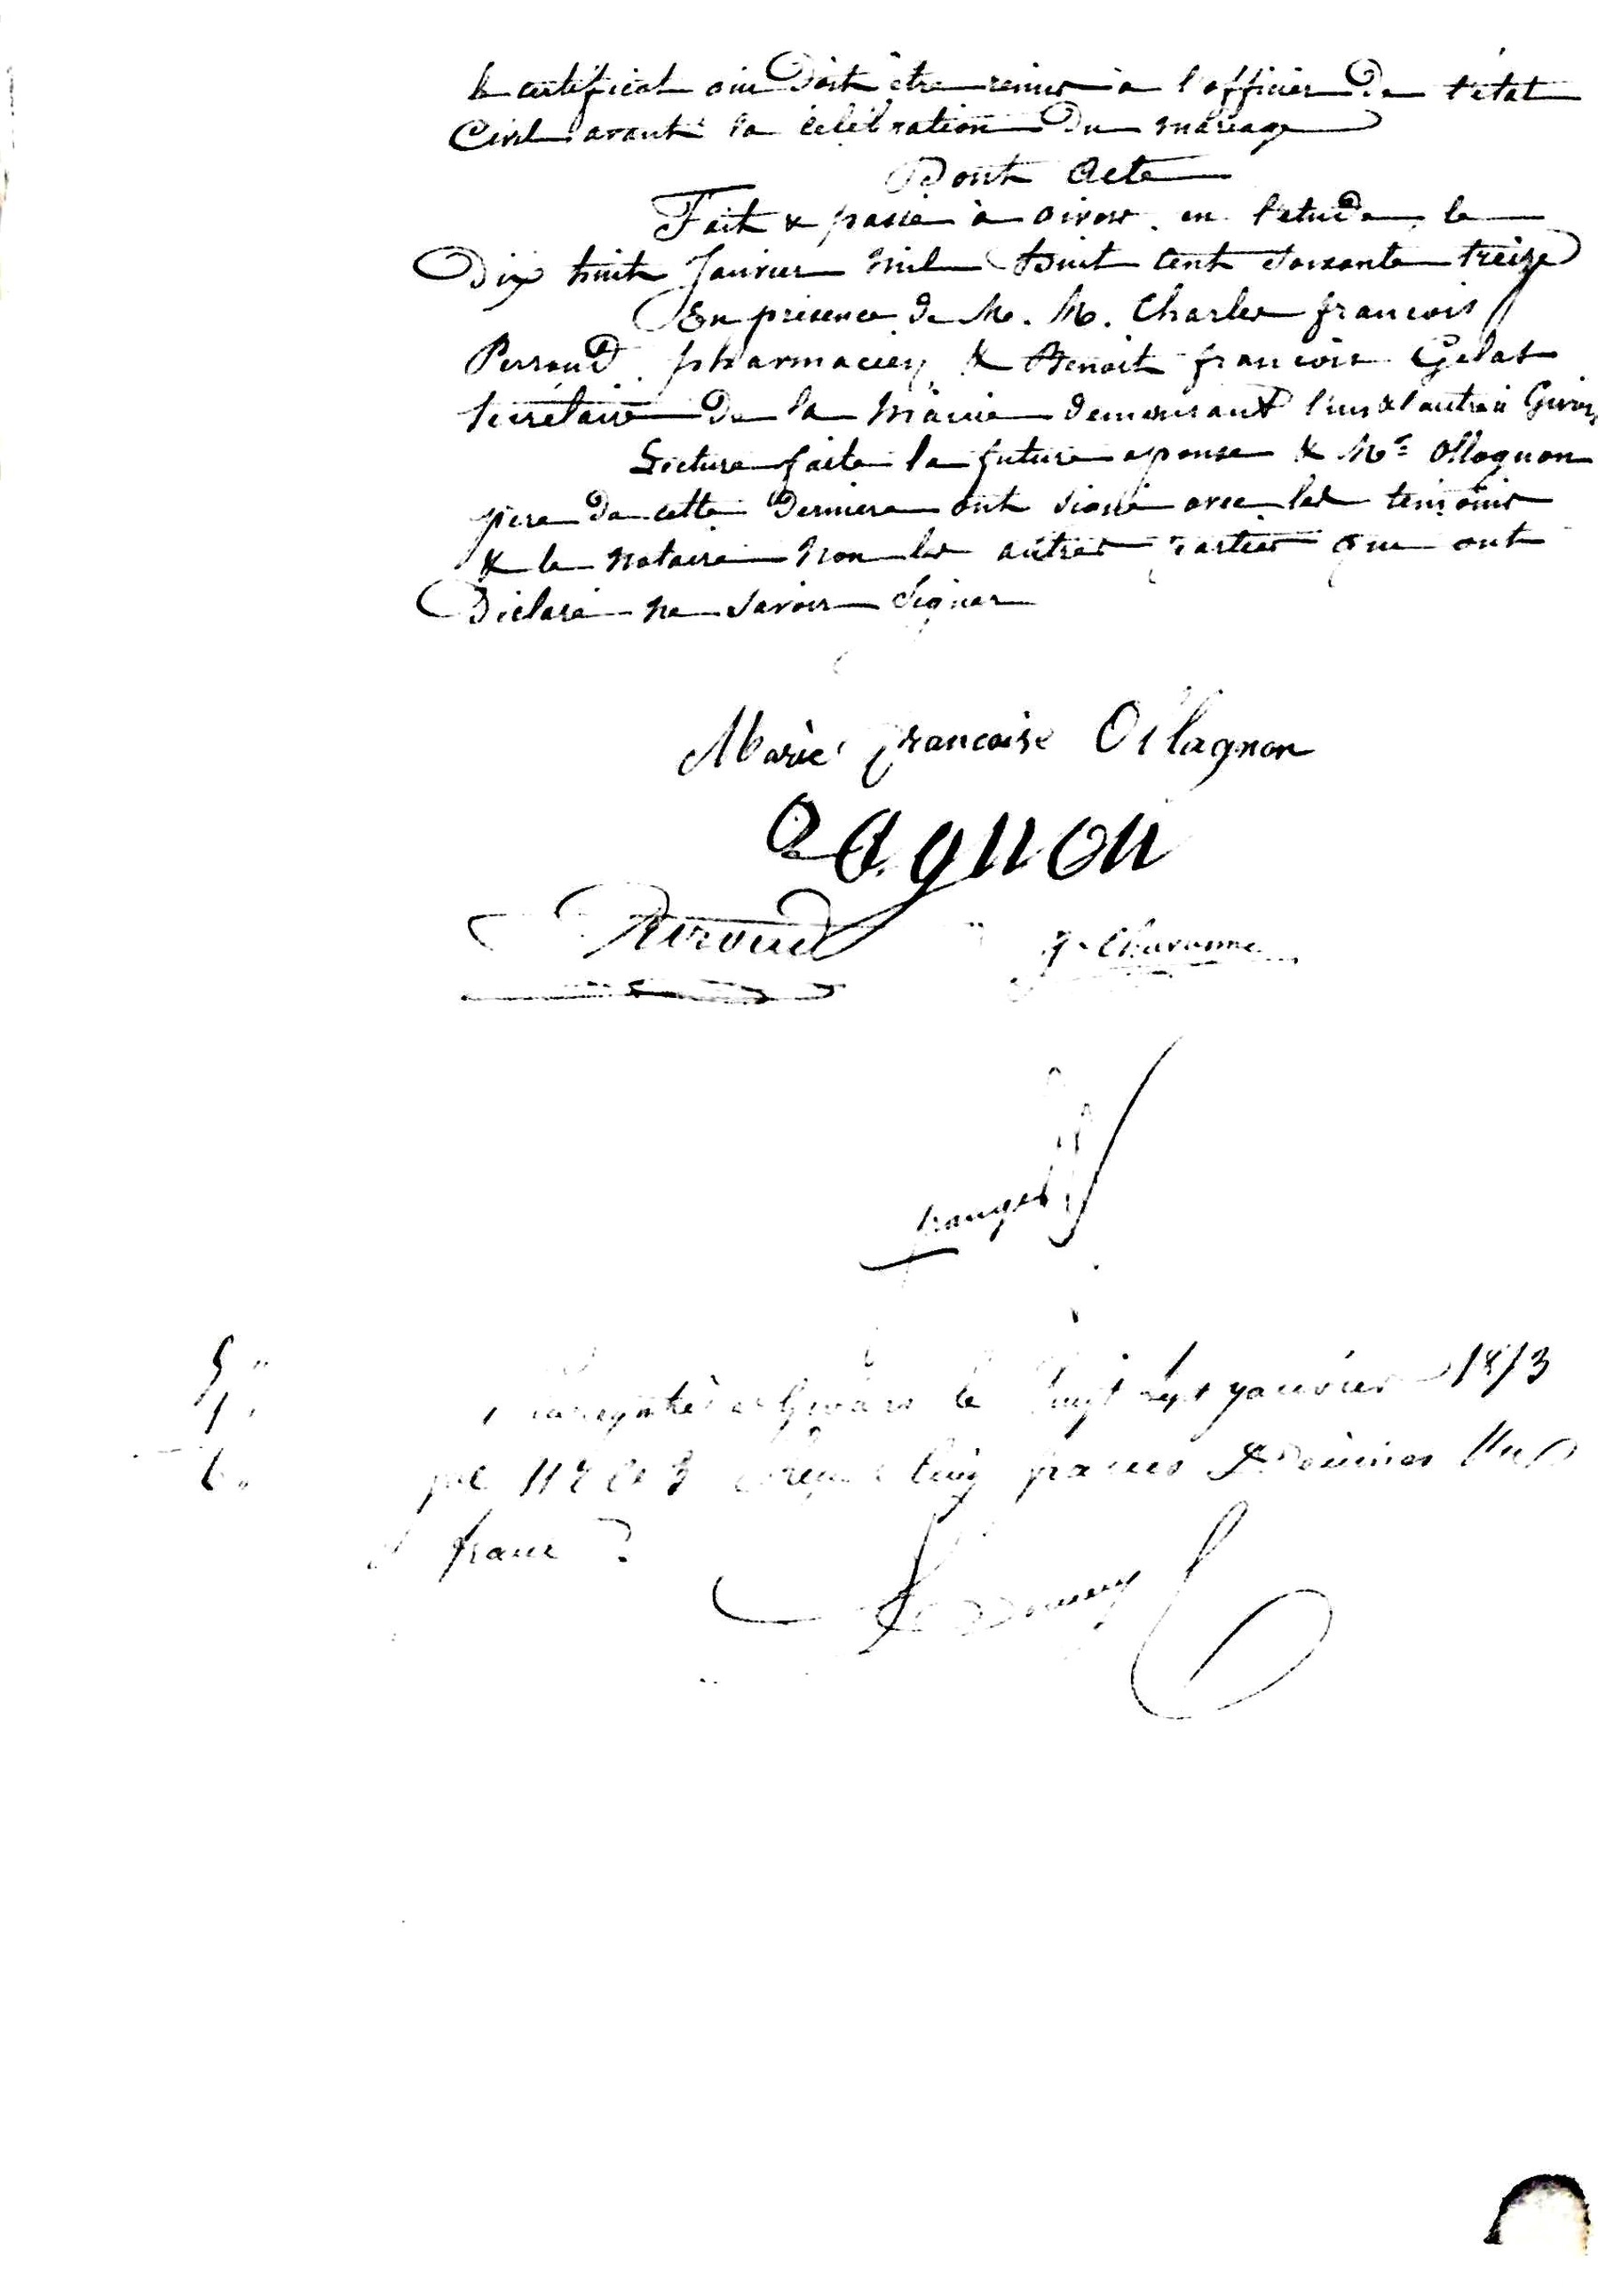 le certificat qui doit être remis à l'officier de l'état
Civil avant la célébration du mariage
Dont Acte
Fait & passé à Givors en l'étude, le
Dix huit Janvier mil huit cent soixante treize
En présence de M. M. Charles françois
Perroud pharmacien & Benoit françois Gelas
secrétaire de la Mairie demeurant l'un & l'autre à Givors
Lecture faite la future epouse & Mr Ollagnon
père de cette dernière ont signé avec les témoins
& le notaire non les autres parties qui ont
Déclaré ne savoir signer
Marie francoise Ollagnon
agnon
Perroud
5 "
1
6 "
Enregistré à Givors le vingt sept janvier 1873
reçu cinq francs décimes Un
franc